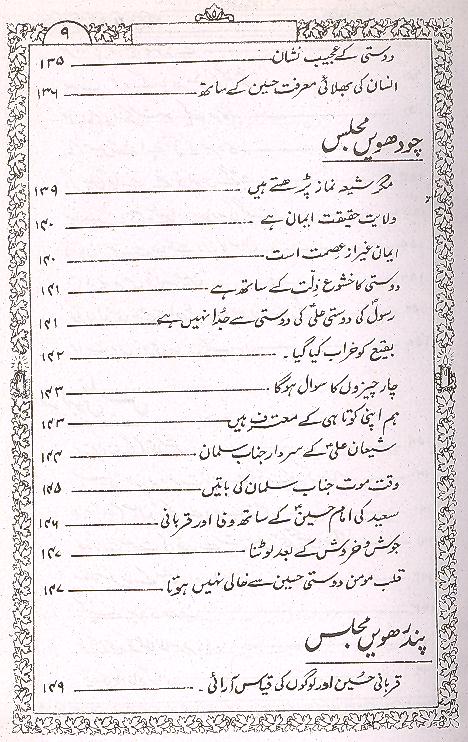 ۹
دوستی کے عجیب نشان ۱۳۵
انسان کی بھلائی معرفت حسین کے ساتھ ۱۳۶
چودھویں مجلس
مگر شیعہ نماز پڑھتے ہیں ۱۳۹
ولایت حقیقت ایمان ہے ۱۴۰
ایمان غیر از عصمت است ۱۴۰
دوستی کا خشوع ذلت کے ساتھ ہے ۱۴۱
رسولؐ کی دوستی علیؑ کی دوستی سے جُدا نہیں ہے ۱۴۱
بقیع کو خراب کیا گیا ۔ ۱۴۲
چار چیزوں کا سوال ہوگا ۱۴۳
ہم اپنی کوتاہی کے معترف ہیں ۱۴۳
شیعان علیؑ کے سردار جناب سلمان ۱۴۴
وقت موت جناب سلمان کی باتیں ۱۴۵
سعید کی امام حسینؑ کے ساتھ وفا اور قربانی ۱۴۶
جوش و خروش کے بعد لوٹنا ۱۴۷
قلب مومن دوستی حسین سے خالی نہیں ہوتا ۱۴۷
پندرھویں مجلس
قربانی حُسین اور لوگوں کی قیاس آرائی ۔ ۱۴۹